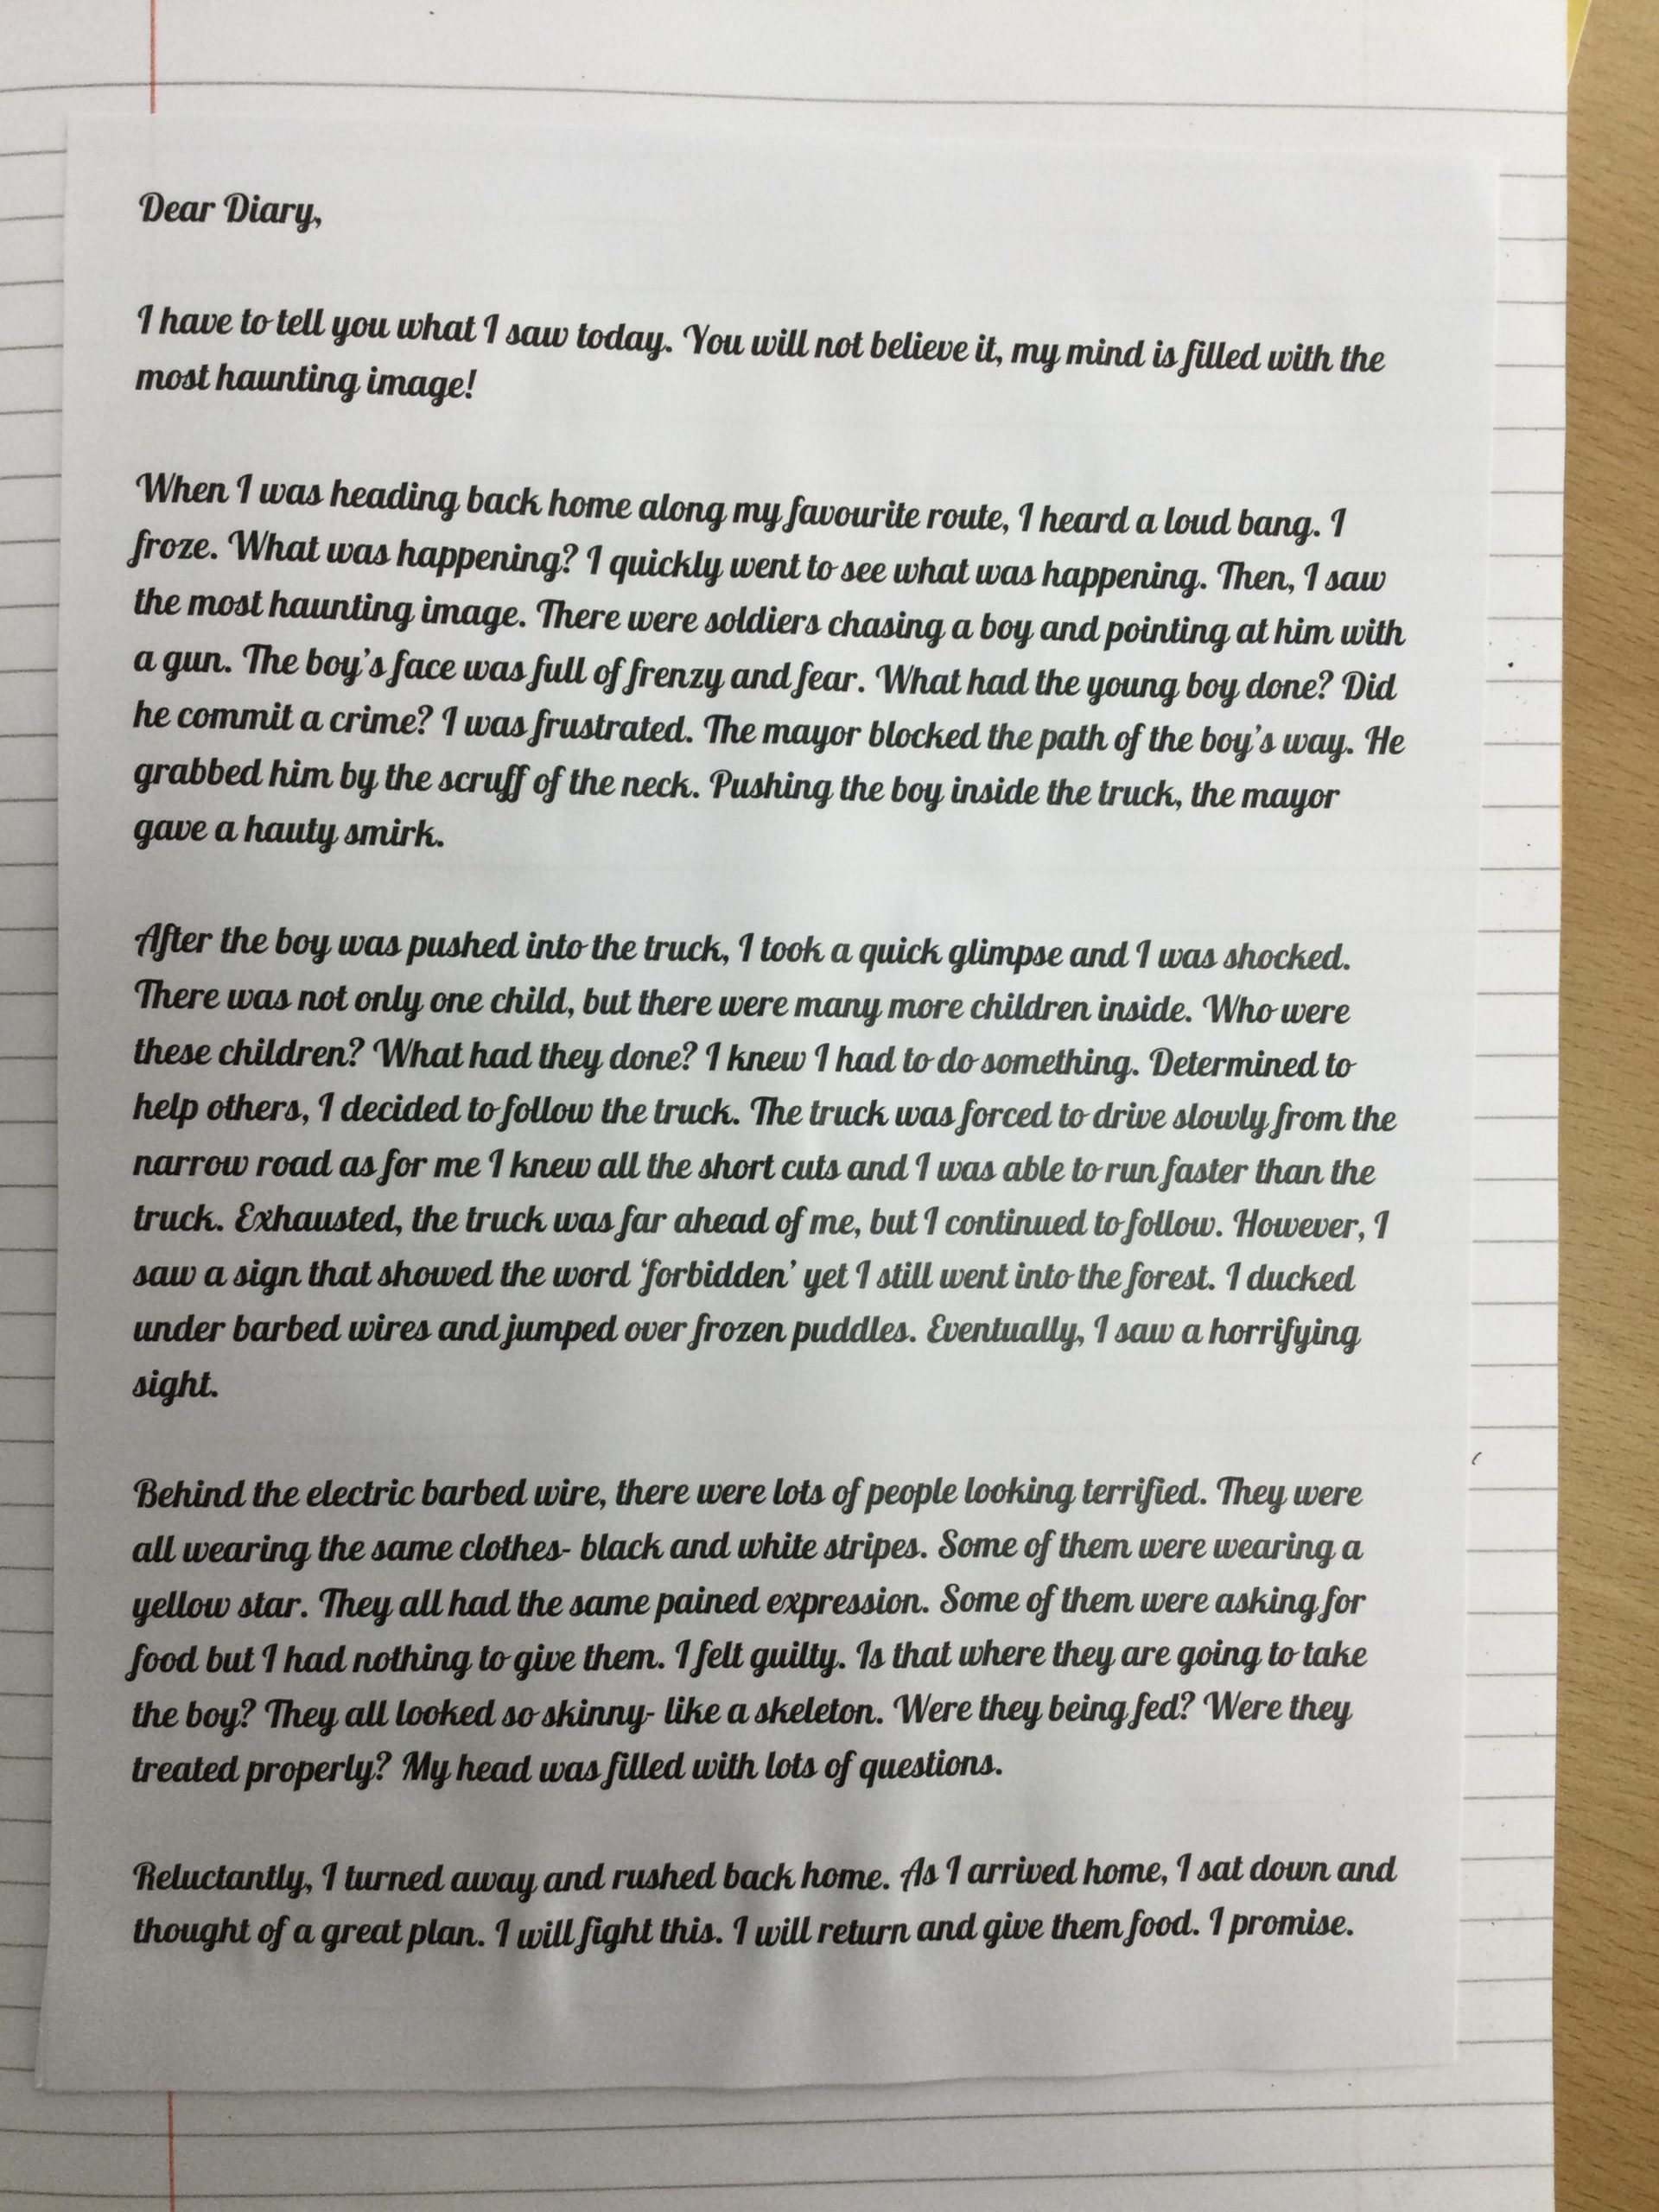 Dear Diary,
I have to tell you what I saw today. You will not believe it, my mind is filled with the
most haunting image!
When I was heading back home along my favourite route, I heard a loud bang. I
froze. What was happening? I quickly went to see what was happening. Then, I saw
the most haunting image. There were soldiers chasing a boy and pointing at him with
a gun. The boy's face was full of frenzy and fear. What had the young boy done? Did
he commit a crime? I was frustrated. The mayor blocked the path of the boy's way. He
grabbed him by the scruff of the neck. Pushing the boy inside the truck, the mayor
gave a hauty smirk.
After the boy was pushed into the truck, I took a quick glimpse and I was shocked.
There was not only one child, but there were many more children inside. Who were
these children? What had they done? I knew I had to do something. Determined to
help others, I decided to follow the truck. The truck was forced to drive slowly from the
narrow road as for me I knew all the short cuts and I was able to run faster than the
truck. Exhausted, the truck was far ahead of me, but I continued to follow. However, I
saw a sign that showed the word 'forbidden' yet I still went into the forest. I ducked
under barbed wires and jumped over frozen puddles. Eventually, I saw a horrifying
sight.
Behind the electric barbed wire, there were lots of people looking terrified. They were
all wearing the same clothes- black and white stripes. Some of them were wearing a
yellow star. They all had the same pained expression. Some of them were asking for
food but I had nothing to give them. I felt guilty. Is that where they are going to take
the boy? They all looked so skinny- like a skeleton. Were they being fed? Were they
treated properly? My head was filled with lots of questions.
Reluctantly, I turned away and rushed back home. As I arrived home, I sat down and
thought of a great plan. I will fight this. I will return and give them food. I promise.